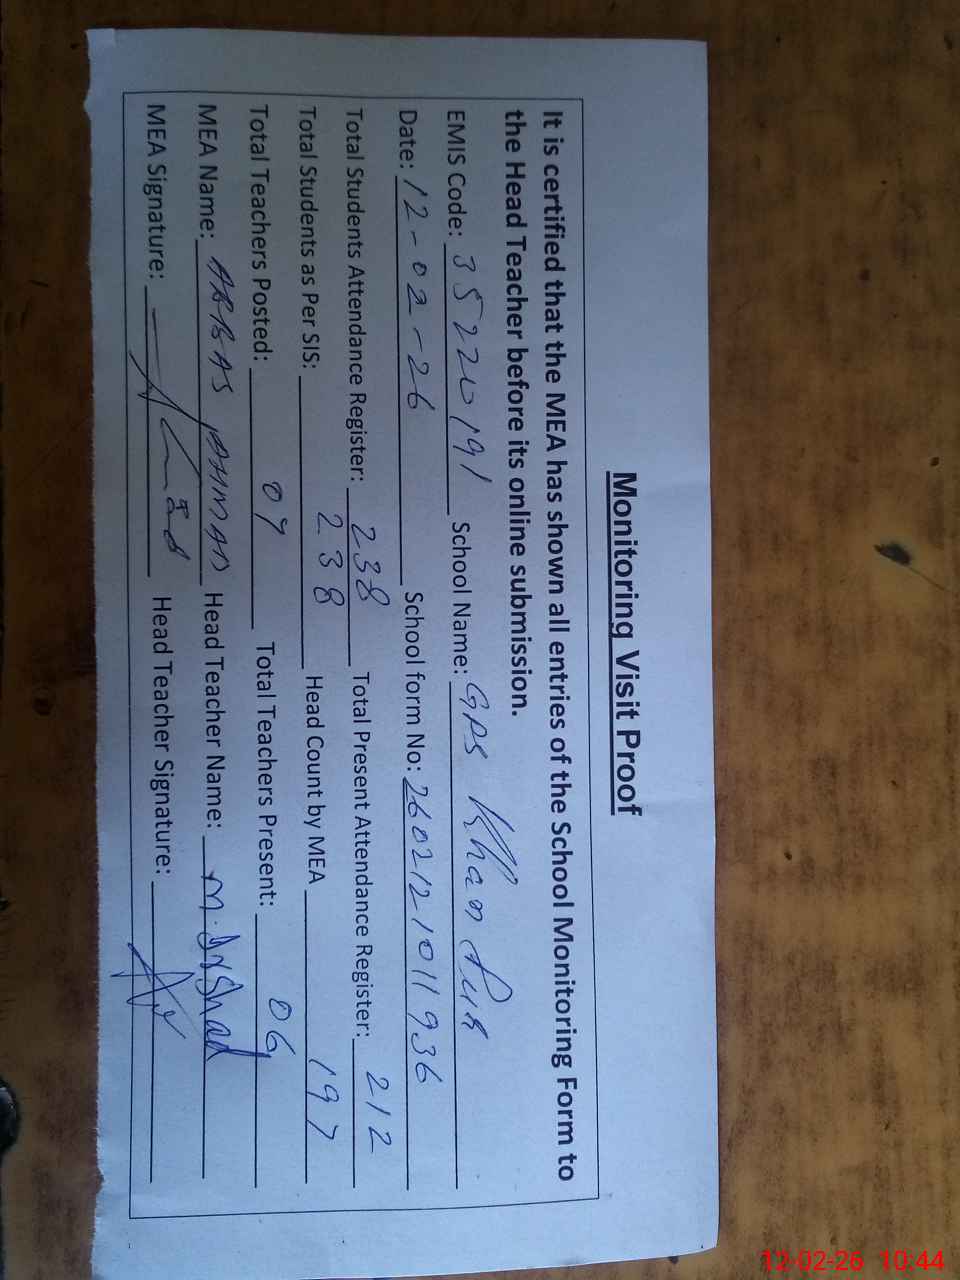 Monitoring Visit Proof
It is certified that the MEA has shown all entries of the School Monitoring Form to
the Head Teacher before its online submission.
EMIS Code: 35220191 School Name: GPS Khan Pur
Date: 12-02-26 School form No: 260212101936
Total Students Attendance Register: 238 Total Present Attendance Register: 212
Total Students as Per SIS: 238 Head Count by MEA 197
Total Teachers Posted: 07 Total Teachers Present: 06
MEA Name: ABBAS AHMAD Head Teacher Name: M. Irshad
MEA Signature: Head Teacher Signature:
12-02-26 10:44